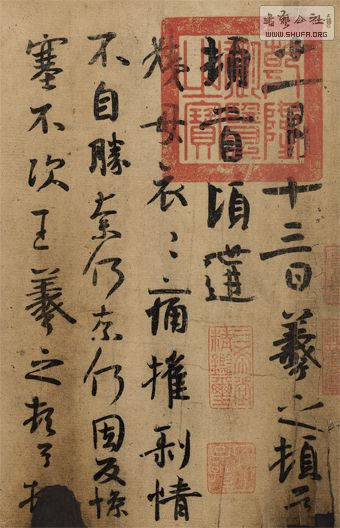 书艺公社
WWW.SHUFA.ORG
乾隆御覽之寶
十一月十三日羲之頓首
頓首頃遘
姨母哀〻痛摧剝情
不自勝奈何奈何因反慘
塞不次王羲之頓首